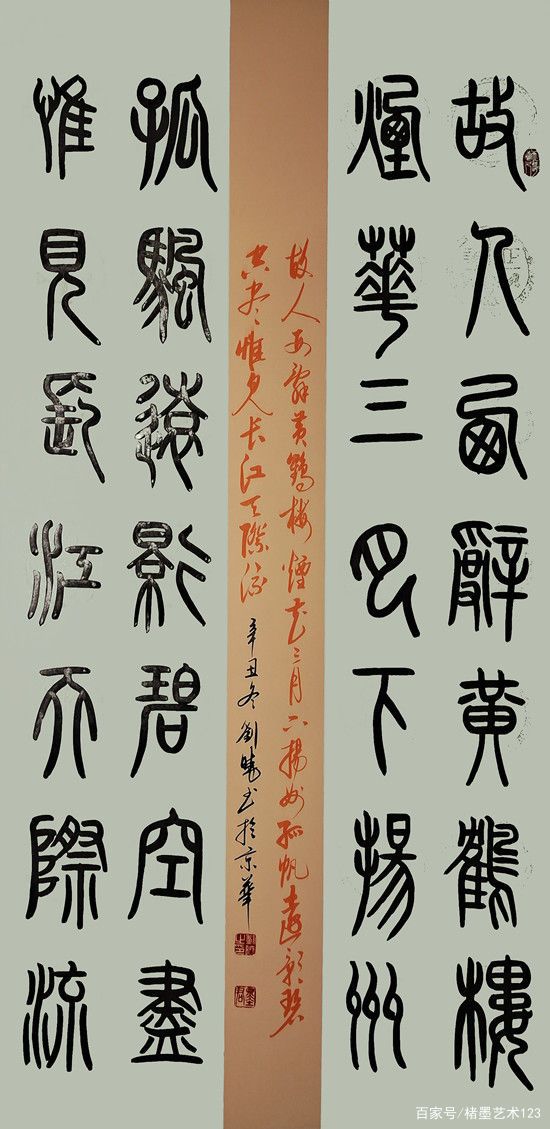 故人西辭黃鶴樓
煙華三月下揚州
故人西辭黃鶴樓煙花三月下揚州孤帆遠影碧
空尽惟見長江天際流 辛丑冬劉書於京華
孤颿遠影碧空盡
惟見長江天際流
百家号/楮墨艺术123